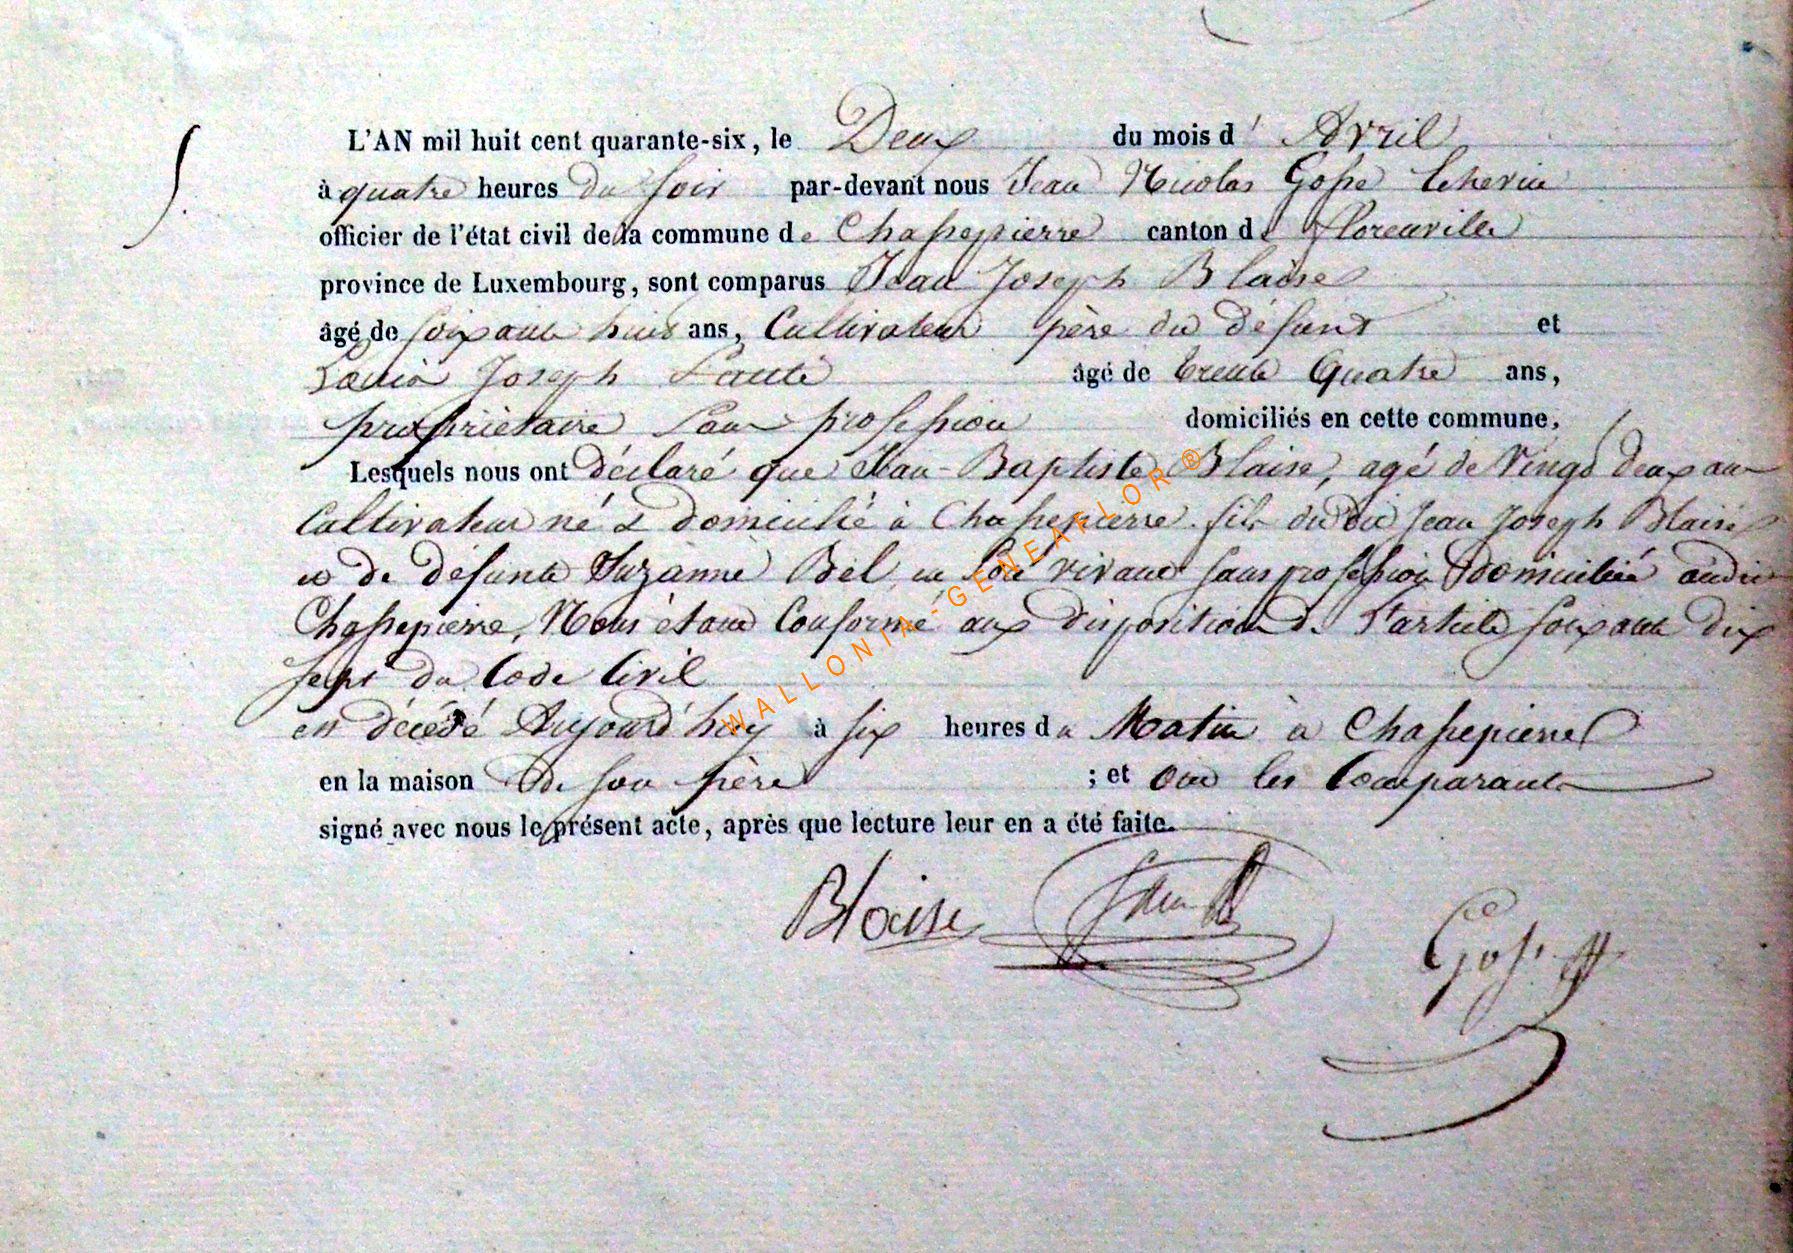 L'AN mil huit cent quarante-six, le Deux du mois d' Avril
5.
à quatre heures du soir par-devant nous Jean Nicolas Gosse Echevin
officier de l'état civil de la commune de Chassepierre canton de Florenville
province de Luxembourg, sont comparus Jean Joseph Blaise
âgé de soixante huit ans, Cultivateur père du défunt et
Louis Joseph âgé de trente Quatre ans,
propriétaire sans profession domiciliés en cette commune,
Lesquels nous ont déclaré que Jean-Baptiste Blaise, agé de Vingt deux ans
Cultivateur né & domicilié à Chassepierre fils du dit Jean Joseph Blaise
et de défunte Suzanne Bél, en son vivant sans profession domiciliée audit
Chassepierre, Nous étant Conformé aux disposition de l'article soixante dix
sept du Code Civil
est décédé Aujourd'huy à six heures du Matin à Chassepierre
en la maison de son père ; et ont les Comparants
signé avec nous le présent acte, après que lecture leur en a été faite.
Blaise Gosse
WALLONIA-GENEAFLOR®